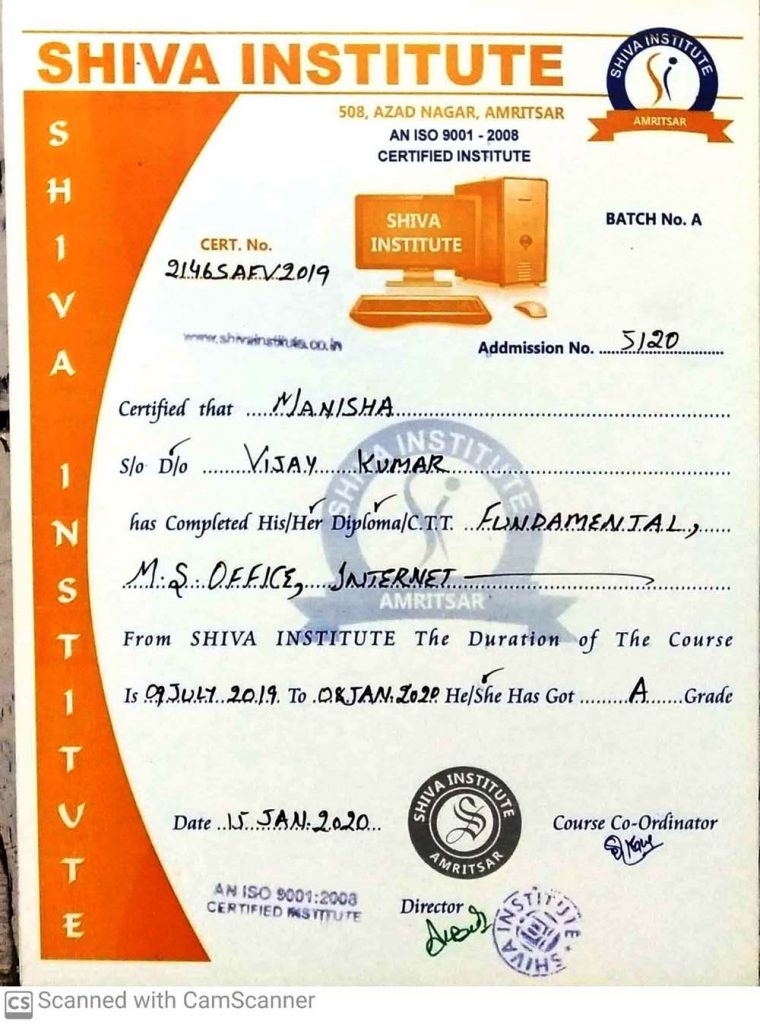 SHIVA INSTITUTE
SHIVA INSTITUTE
Si
AMRITSAR
508, AZAD NAGAR, AMRITSAR
AN ISO 9001 - 2008
CERTIFIED INSTITUTE
SHIVA INSTITUTE
SHIVA
INSTITUTE
BATCH No. A
CERT. No.
2146SAFV2019
www.shivainstitute.co.in
Addmission No. ....5120............
Certified that ....MANISHA................
S/o D/o ........VIJAY.....KUMAR................
has Completed His/Her Diploma/C.T.T. ..FUNDAMENTAL,.....
M.S. OFFICE, INTERNET
SHIVA INSTITUTE
AMRITSAR
From SHIVA INSTITUTE The Duration of The Course
Is 09 JULY 2019 To 08 JAN. 2020 He/She Has Got .........A......Grade
Date ..15 JAN. 2020...
SHIVA INSTITUTE
S
AMRITSAR
Course Co-Ordinator
AN ISO 9001:2008
CERTIFIED INSTITUTE
Director
SHIVA INSTITUTE
CS Scanned with CamScanner